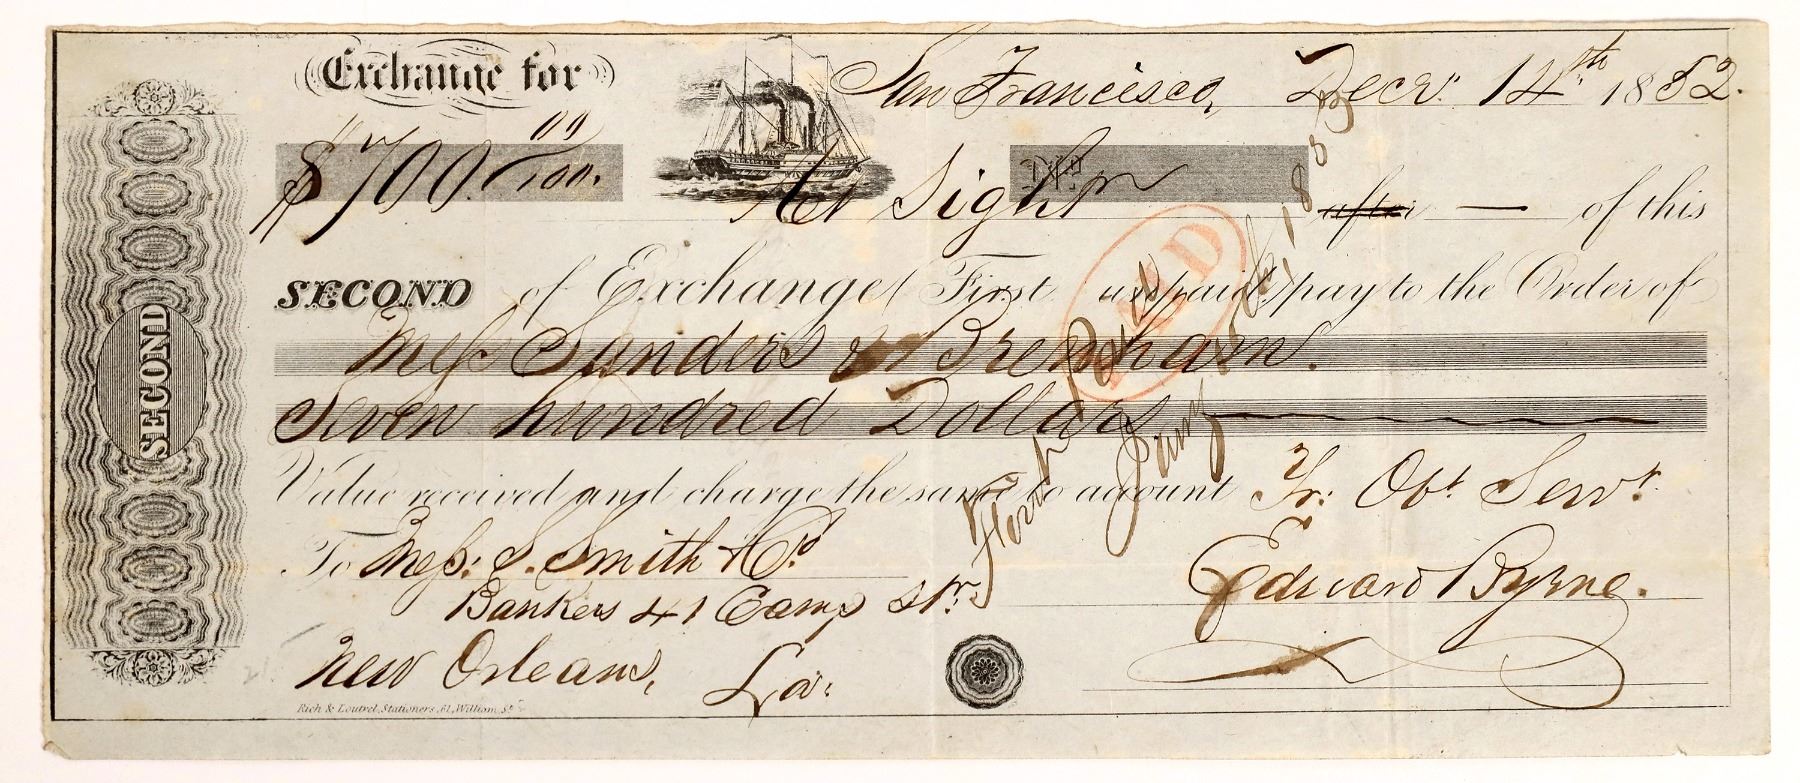 Exchange for
San Francisco, Decr. 14th 1852.
$700 00/100. At Sight after — of this
SECOND of Exchange (First unpaid) pay to the Order of
Mess Sanders & Brenham.
Seven hundred Dollars
Value received and charge the same to account Yr: Obt. Servt.
To Mess: S. Smith & Co. Edward Byrne.
Bankers 41 Camp Str.
New Orleans, La:
Rich & Loutrel, Stationers, 61, William, St.
SECOND
PAID
Jany 1853